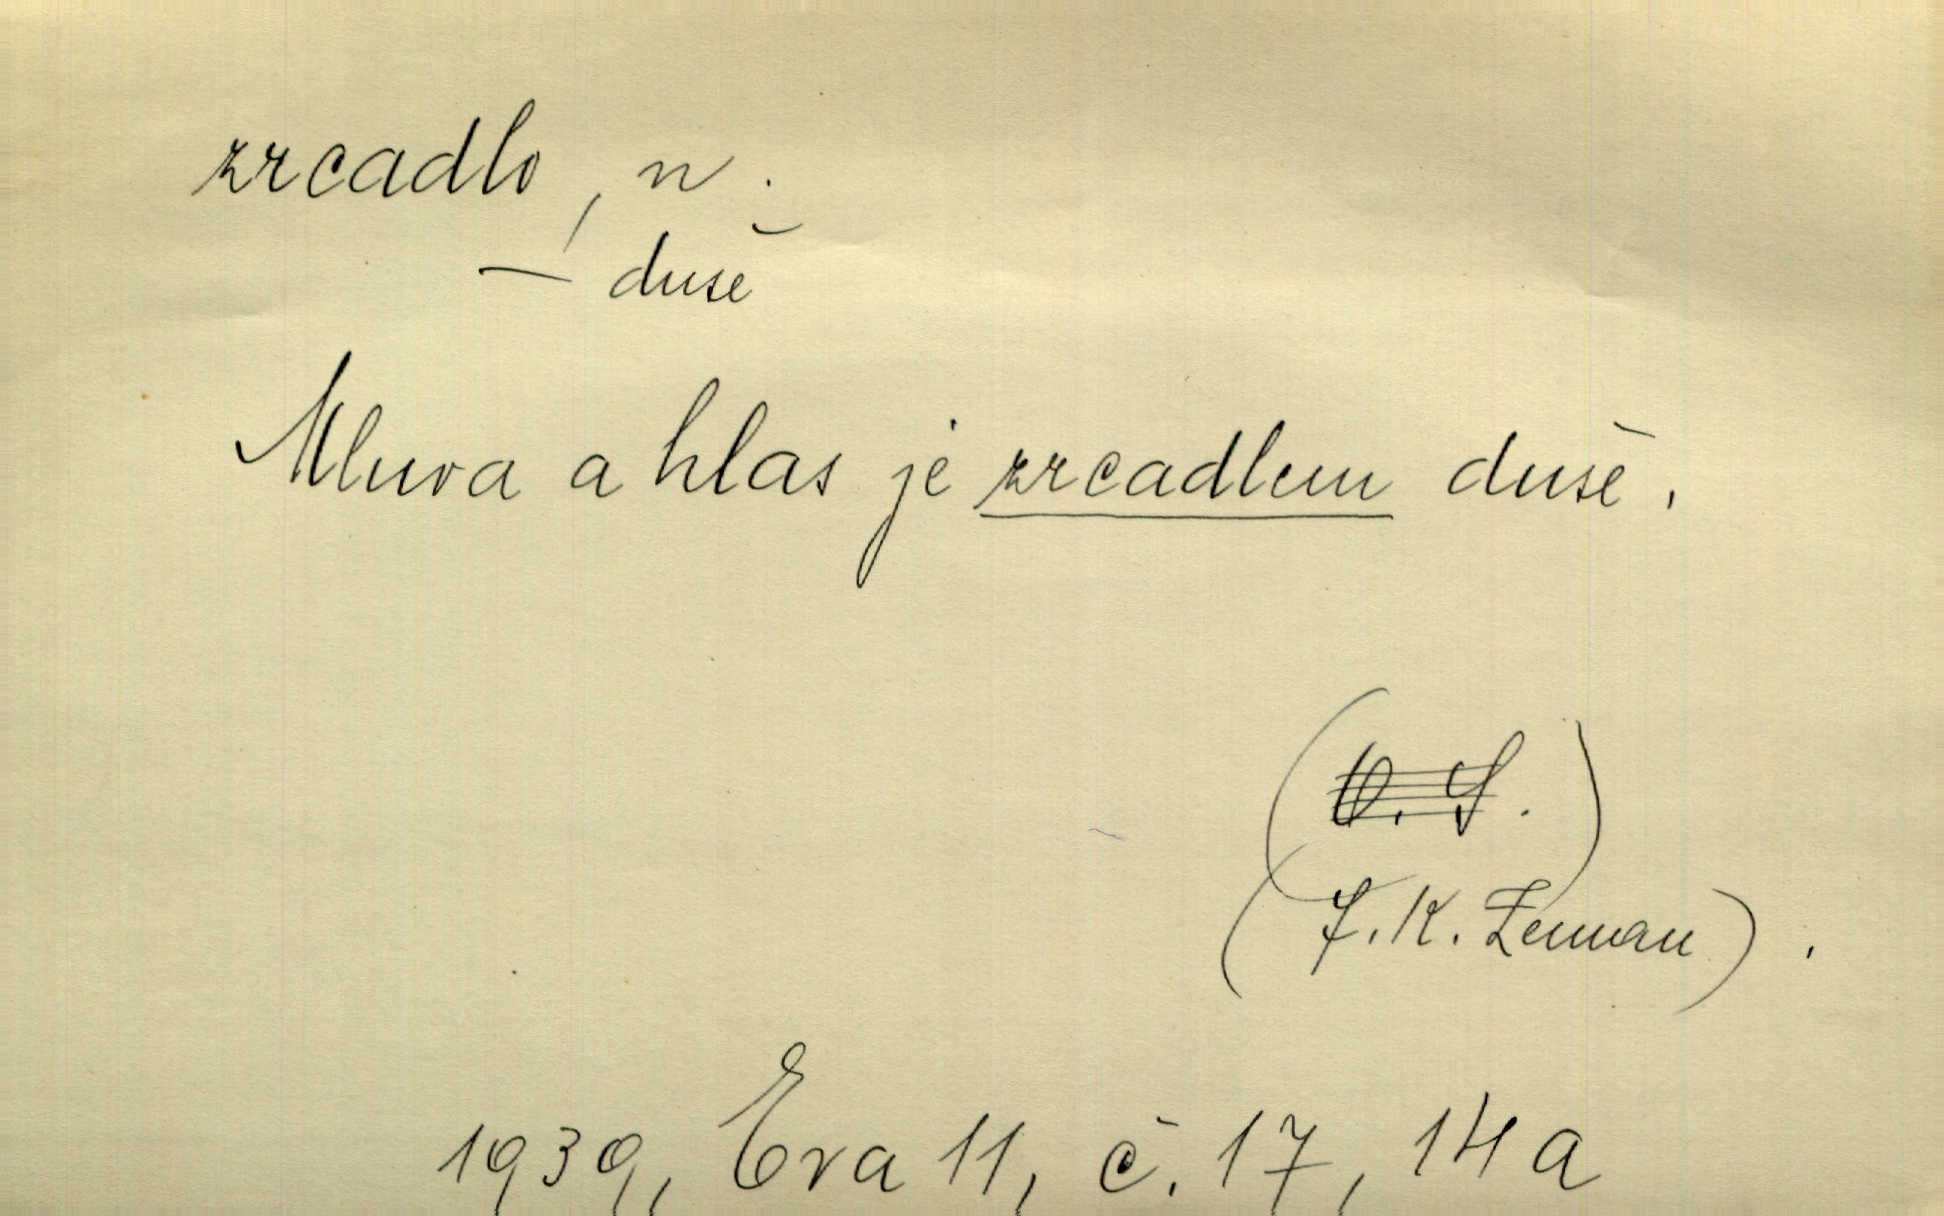 zrcadlo, n.
— duše
Mluva a hlas je zrcadlem duše.
(F. K. Zeman).
1939, Eva 11, č. 17, 14 a